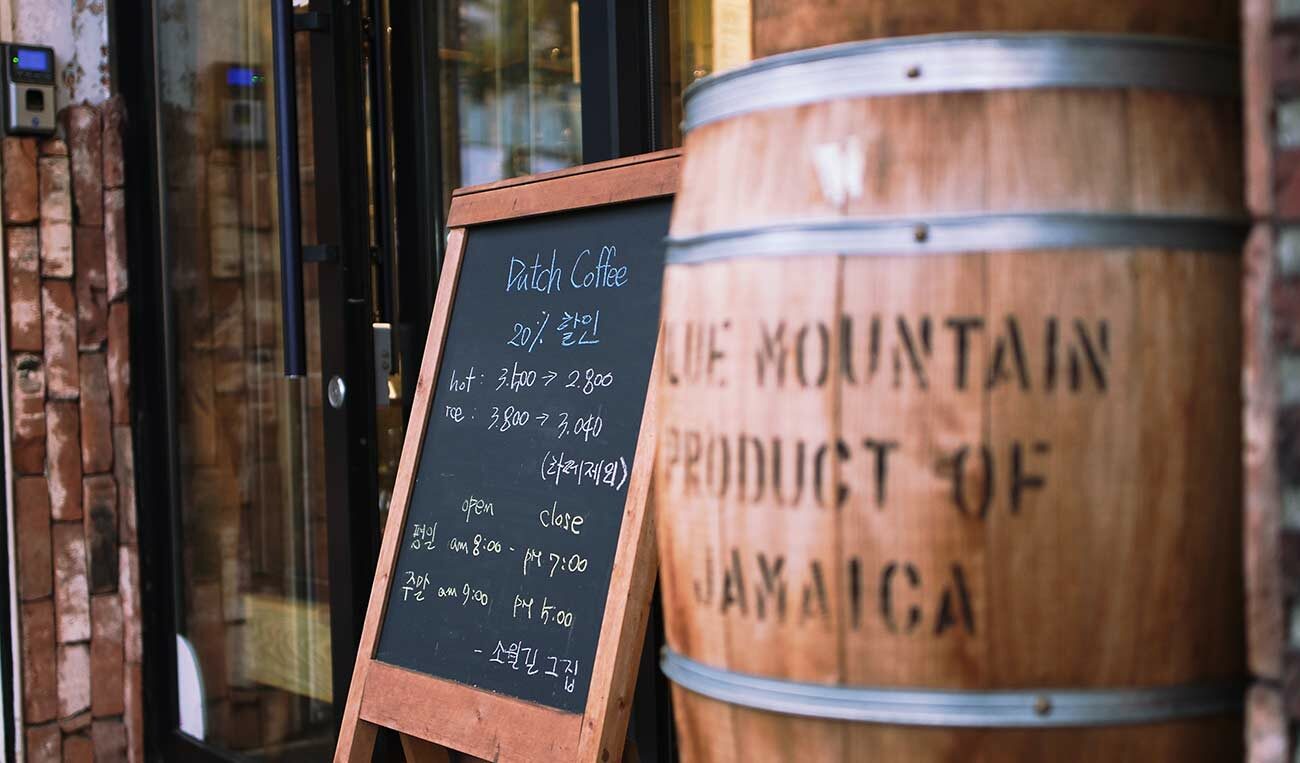 Dutch Coffee
20% 할인
hot : 3.500 → 2.800
ice : 3.800 → 3.040
(라떼제외)
open close
평일 am 8:00 - pM 7:00
주말 am 9:00 pM 5:00
- 소월길 그집
LUE MOUNTAIN
PRODUCT OF
JAMAICA